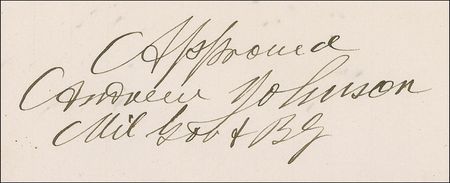 Approved
Andrew Johnson
Mil Gov & BG